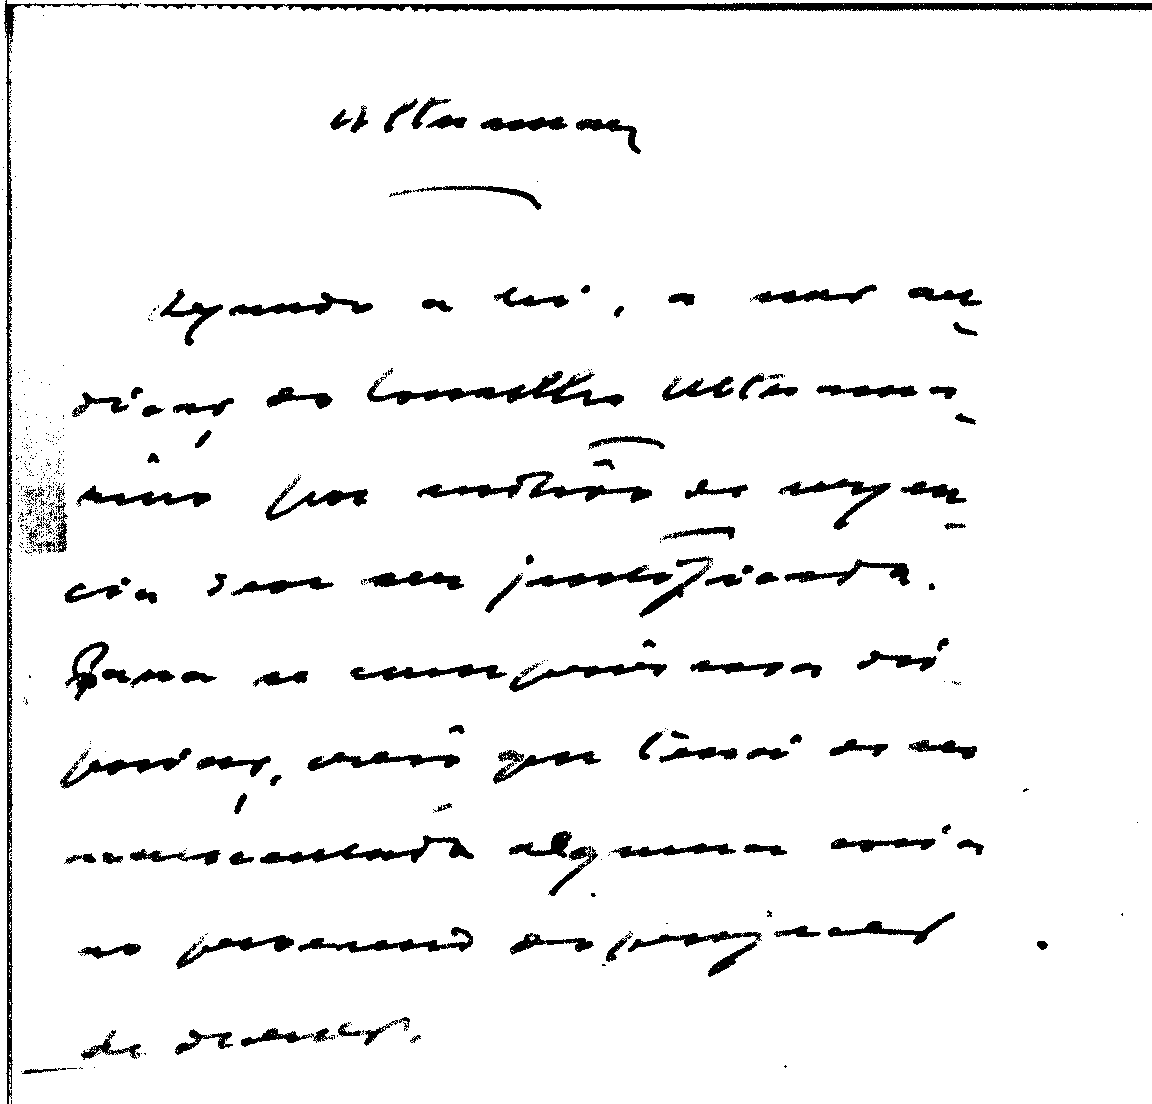 Ultramar
Segundo a lei, a não au
diencia do Conselho Ultrama
rino por motivo de urgen
cia deve ser justificada.
Para se cumprir essa dis
posição, creio que terá de ser
acrescentada alguma coisa
no preambulo do projecto
de decreto.